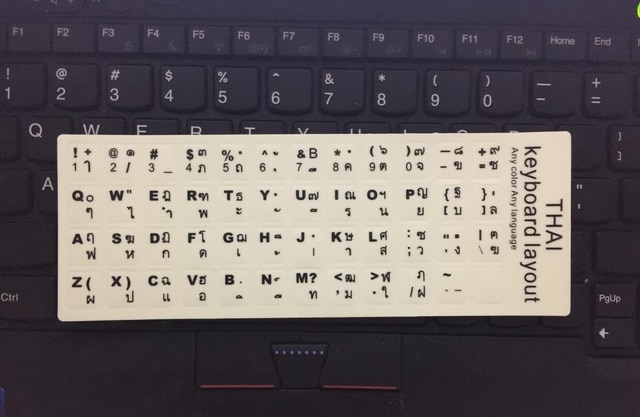 F1 F2 F3 F4 F5 F6 F7 F8 F9 F10 F11 F12 Home End
! @ # $ % ^ & * ( ) — +
1 2 3 4 5 6 7 8 9 0 - =
Q W E R T
A
Ctrl
PgUp
! + @ ๑ # $ ๓ % ^ & B * ( ๖ ) ๗ — ๘ + ๙
1 า 2 / 3 _ 4 ภ 5 ถ 6 7 8 ค 9 ต 0 จ - ข = ช
Q ๐ W " E ฎ R ฑ T ธ Y U ๗ I ณ O ฯ P ญ { ฐ } ,
ๆ ไ ำ พ ะ ั ี ร น ย [ บ ] ล
A ฤ S ฆ D ฏ F โ G ฌ H J K ษ L ศ : ซ " . | ฅ
ฟ ห ก ด เ ้ ่ า ส ; ว ' ง \ ฃ
Z ( X ) C ฉ V ฮ B . N M ? < ฒ > ฬ ฦ ~
ผ ป แ อ ท , ม . ใ / ฝ
THAI
keyboard layout
Any color Any language